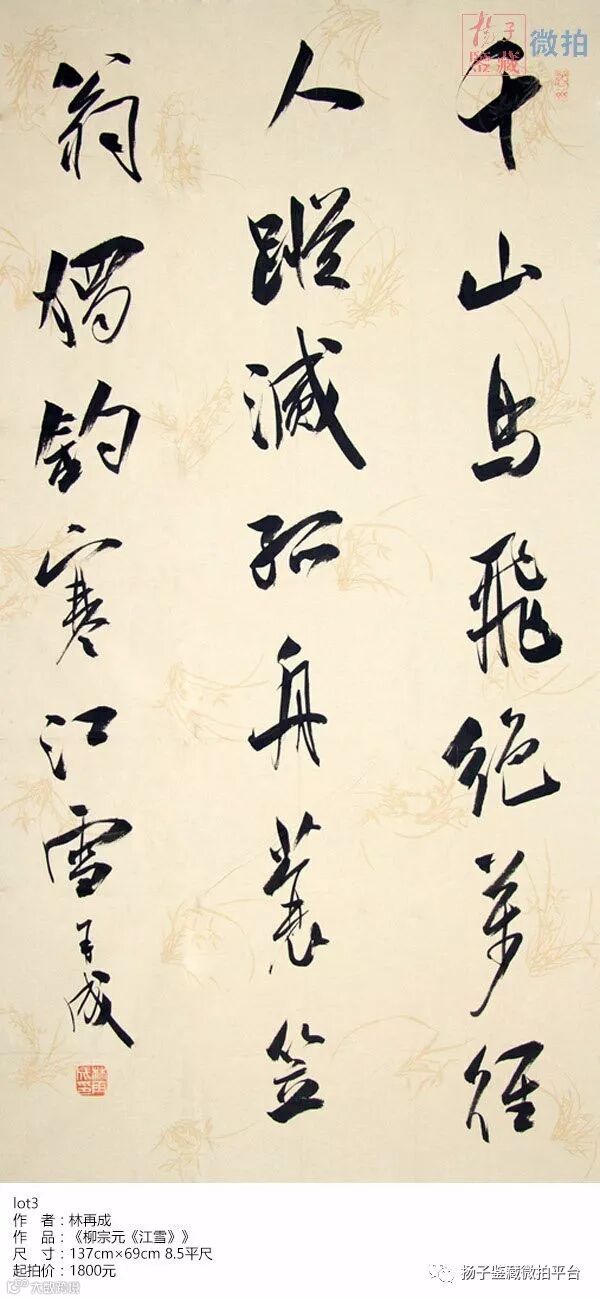 千山鸟飛絶萬径
人蹤滅孤舟蓑笠
翁獨釣寒江雪
再成
扬子
鉴藏
微拍
lot3
作 者：林再成
作 品：《柳宗元《江雪》》
尺 寸：137cm×69cm 8.5平尺
起拍价：1800元
大数跨境
扬子鉴藏微拍平台